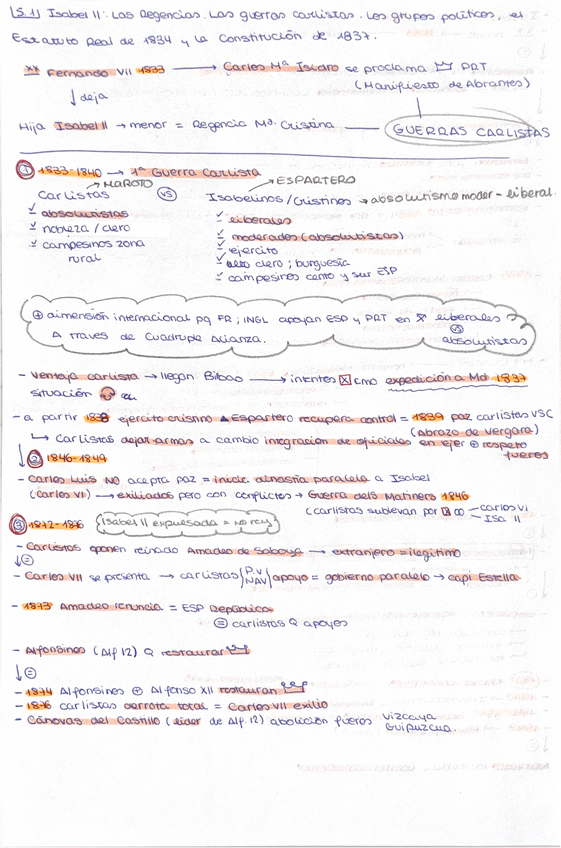 (5.1) Isabel II: Las Regencias. Las guerras carlistas. Los grupos políticos, el
Estatuto Real de 1834 y la Constitución de 1837.
xx Fernando VII 1833 → Carlos Mª Isidro se proclama PRT
(Manifiesto de Abrantes)
↓ deja
Hija Isabel II → menor = Regencia Mª Cristina — GUERRAS CARLISTAS
① 1833-1840 → 1ª Guerra Carlista
MAROTO
ESPARTERO
Carlistas VS Isabelinos/Cristinos → absolutismo moder - liberal.
absolutistas
nobleza / clero
campesinos zona
rural
liberales
moderados (absolutistas)
ejercito
alto clero ; burguesía
campesinos cento y sur ESP
⊕ dimensión internacional pq FR ; INGL apoyan ESP y PRT en liberales
VS
A traves de Cuadruple Alianza. absolutistas
- Ventaja carlista → llegan Bilbao → intentos X cmo expedición a Md 1837
situación
- a partir 1838 ejercito cristino ▲Espartero recupera control = 1839 paz carlistas VSC
(Abrazo de Vergara)
↳ Carlistas dejar armas a cambio integración de oficiales en ejer ⊕ respeto
fueros
② 1846-1849
- Carlos Luis NO acepta paz = inicia dinastía paralela a Isabel
(Carlos VI) → exiliados pero con conflictos → Guerra dels Matiners 1846
(carlistas sublevan por X ∞ Carlos VI
Isa II
③ 1872-1876 Isabel II expulsada = no rey
- Carlistas oponen reinado Amadeo de Saboya → extranjero = ilegítimo
↓ =
- Carlos VII se presenta → carlistas P.V NAV apoyo = gobierno paralelo → capi Estella.
- 1873 Amadeo renuncia = ESP República
= carlistas Q apoyes
- Alfonsinos (Alf 12) Q restaurar
↓ =
- 1874 Alfonsinos ⊕ Alfonso XII restauran
- 1876 carlistas derrota total = Carlos VII exilio
- Cánovas del Castillo (líder de Alf. 12) abolición fueros Vizcaya
Guipuzcua.